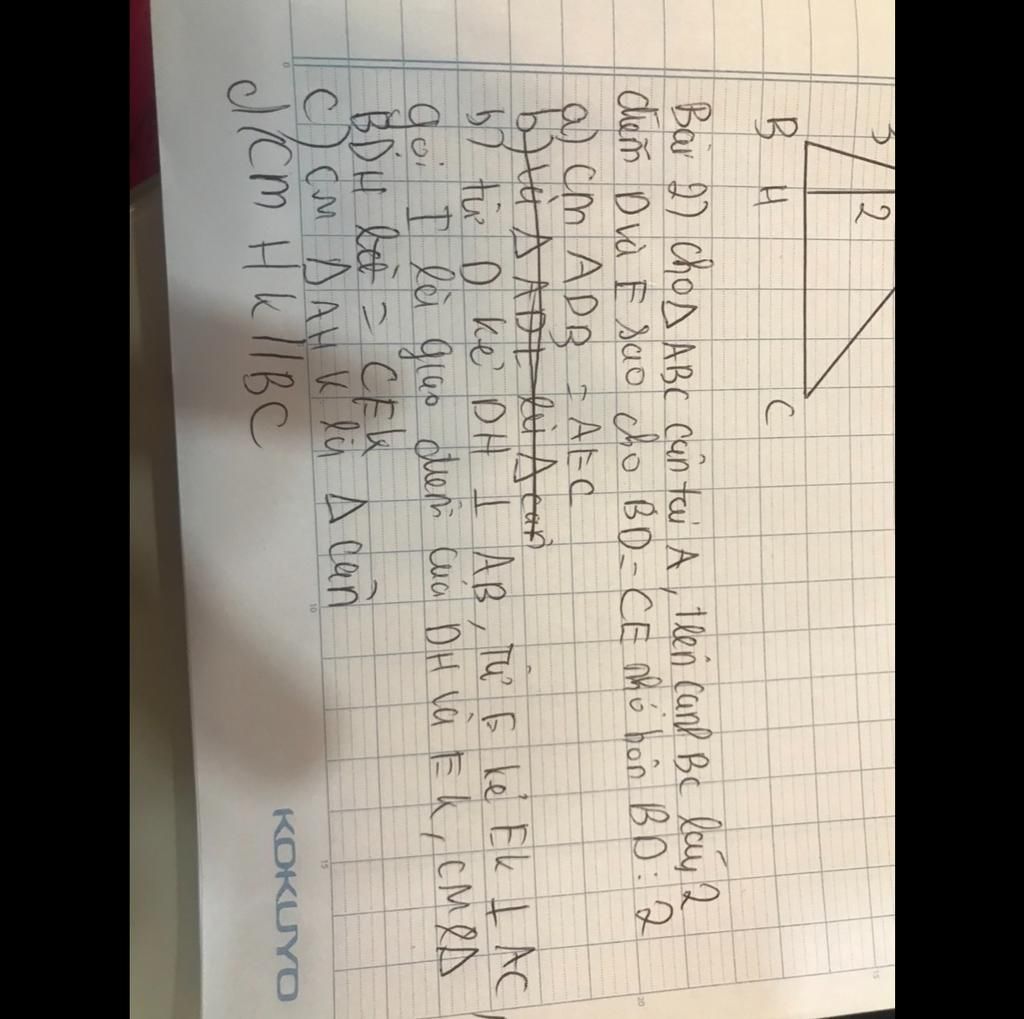 3
2
B H C
Bài 2) cho Δ ABC cân tại A, trên cạnh BC lấy 2
điểm D và E sao cho BD = CE nhỏ hơn BD : 2
a) CM ADB = AEC
b) Δ ADE là Δ cân
b) từ D kẻ DH ⊥ AB, Từ E kẻ EK ⊥ AC
gọi I là giao điểm của DH và EK, CM Δ
BDH = CEK
c) CM Δ AHK là Δ cân
d) CM HK // BC
KOKUYO
0
10
15
20
15